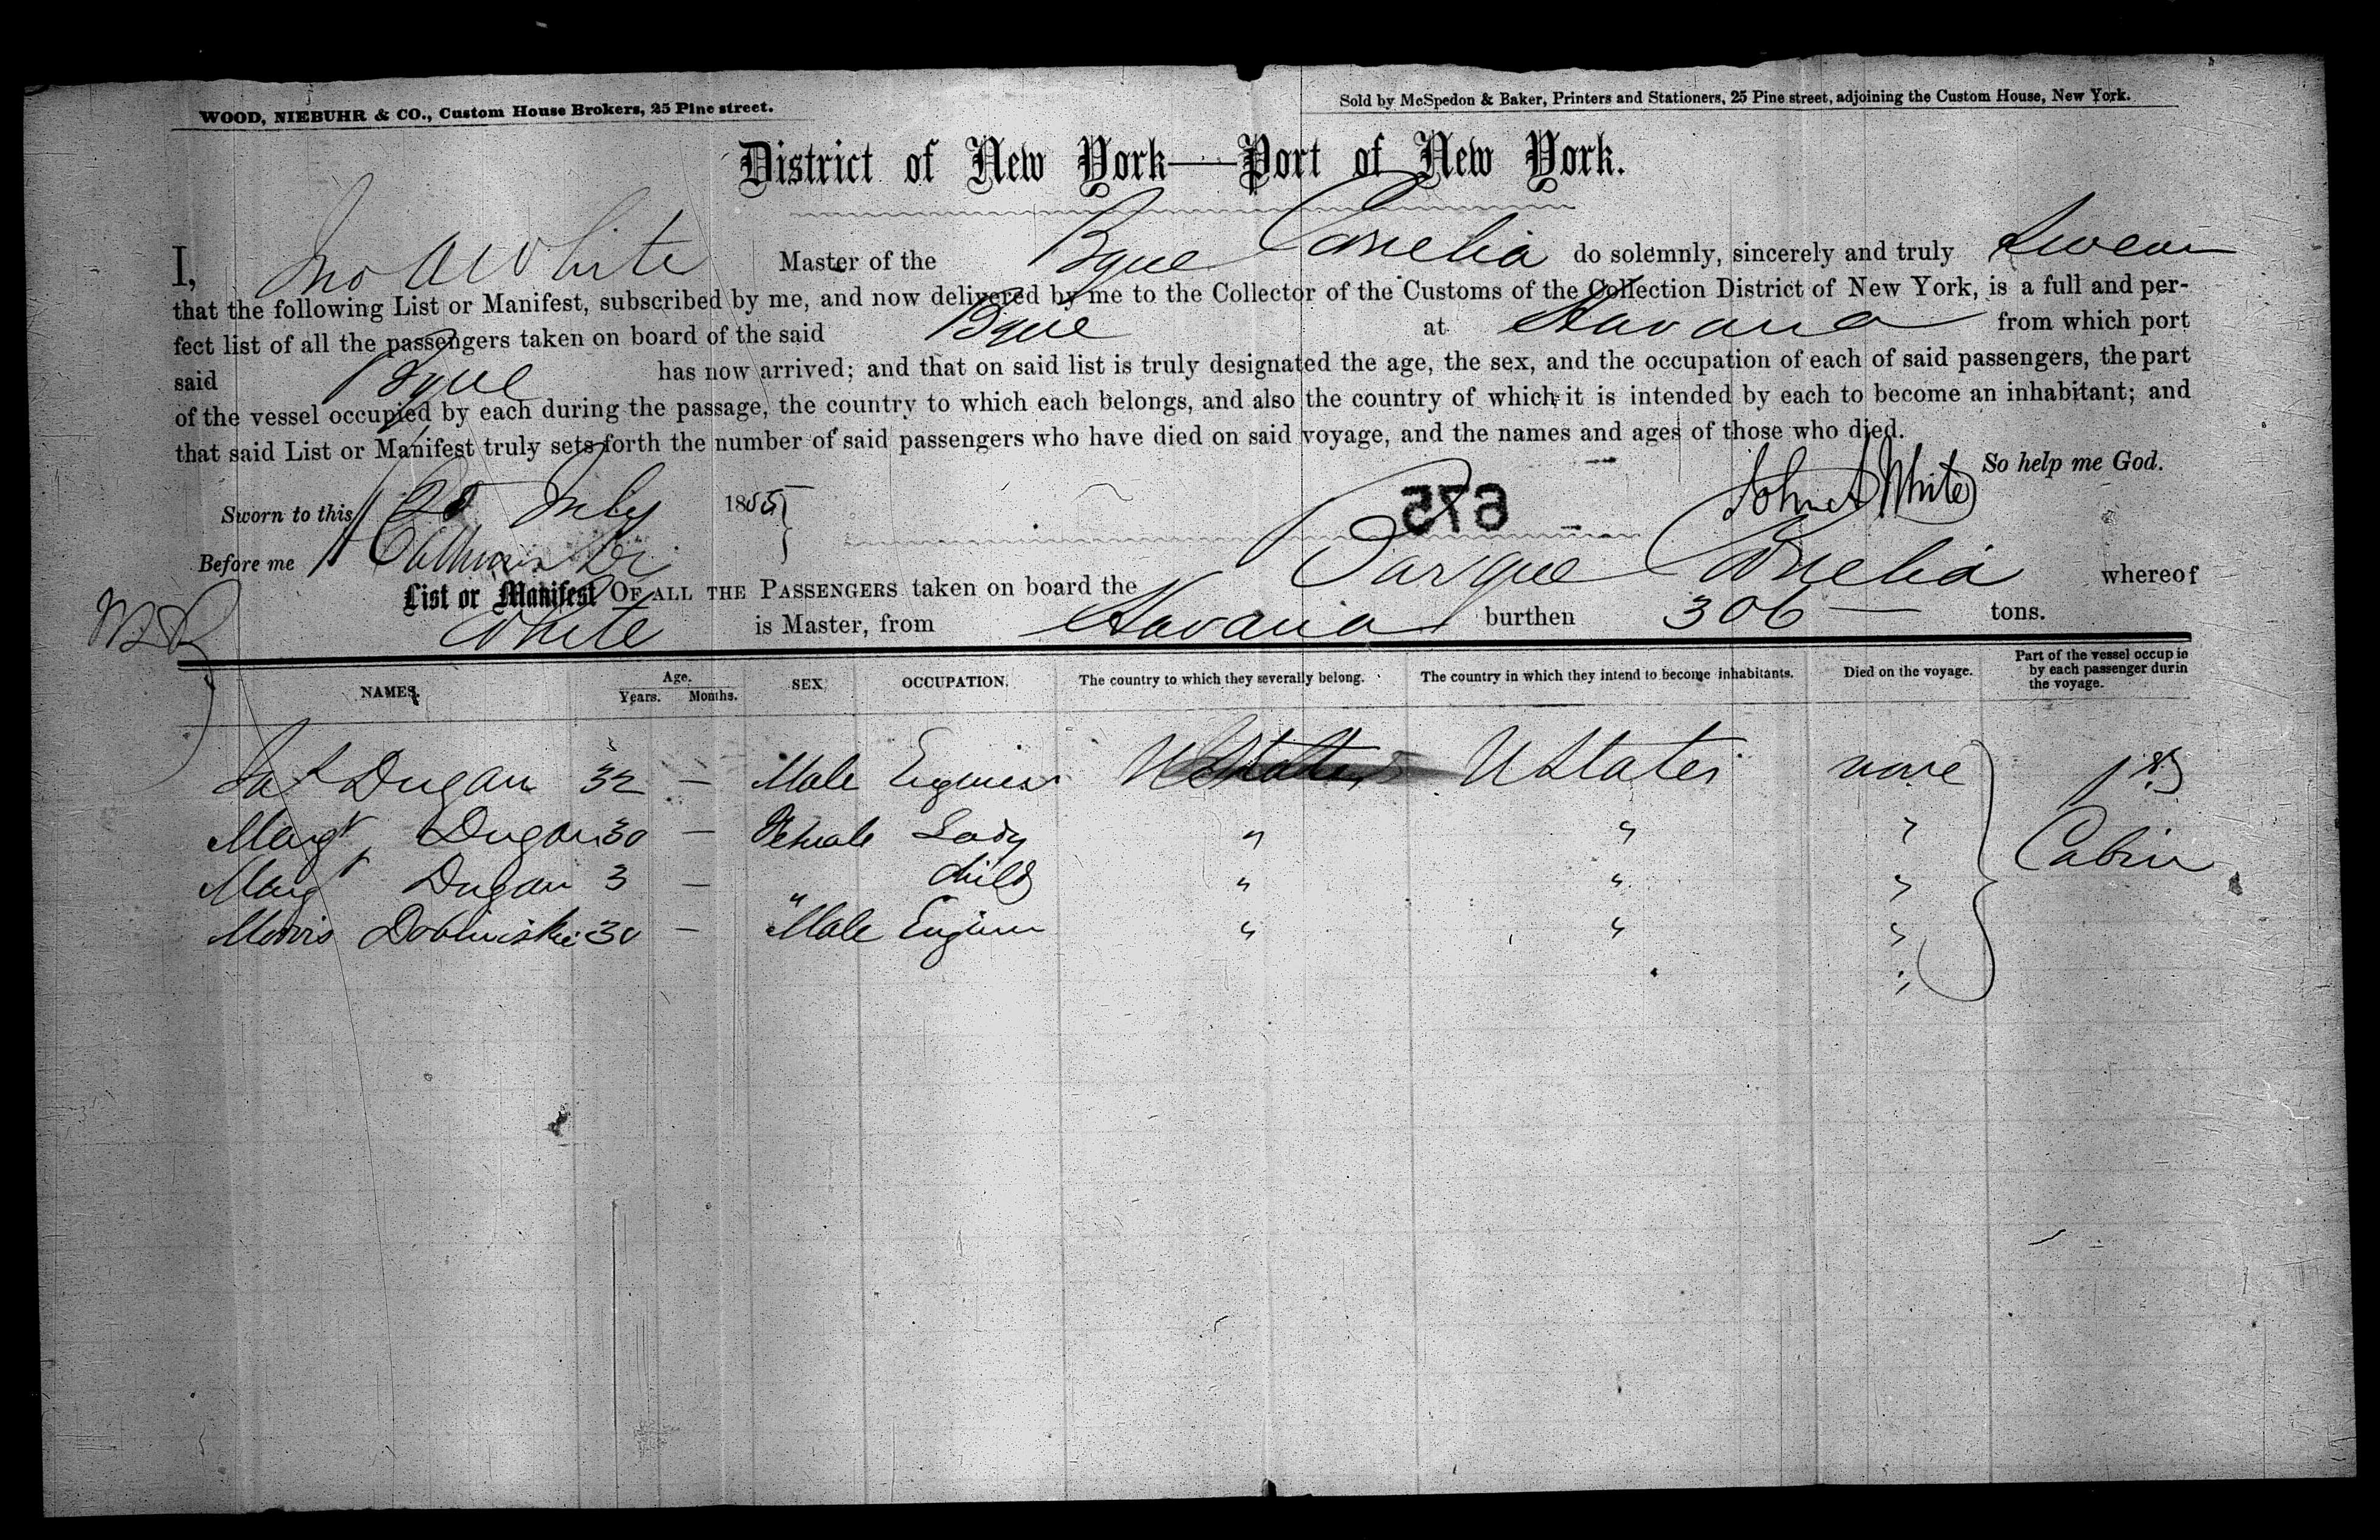 WOOD, NIEBUHR & CO., Custom House Brokers, 25 Pine street.
Sold by McSpedon & Baker, Printers and Stationers, 25 Pine street, adjoining the Custom House, New York.
District of New York—Port of New York.
I, Jno A White Master of the Bque Cornelia do solemnly, sincerely and truly Swear
that the following List or Manifest, subscribed by me, and now delivered by me to the Collector of the Customs of the Collection District of New York, is a full and per-
fect list of all the passengers taken on board of the said Bque at Havana from which port
said Bque has now arrived; and that on said list is truly designated the age, the sex, and the occupation of each of said passengers, the part
of the vessel occupied by each during the passage, the country to which each belongs, and also the country of which it is intended by each to become an inhabitant; and
that said List or Manifest truly sets forth the number of said passengers who have died on said voyage, and the names and ages of those who died.
So help me God.
Sworn to this July 1855 John A White
675
Before me
List or Manifest OF ALL THE PASSENGERS taken on board the Barque Cornelia whereof
White is Master, from Havana burthen 306 — tons.
NAMES. Age. Years. Months. SEX. OCCUPATION. The country to which they severally belong. The country in which they intend to become inhabitants. Died on the voyage. Part of the vessel occupie by each passenger durin the voyage.
Dugan 32 — Male Engineer U States U States none 1st
Margt Dugan 30 — Female Lady " " " Cabin
Margt Dugan 3 — " Child " " "
Morris 30 — Male Engineer " " "
"